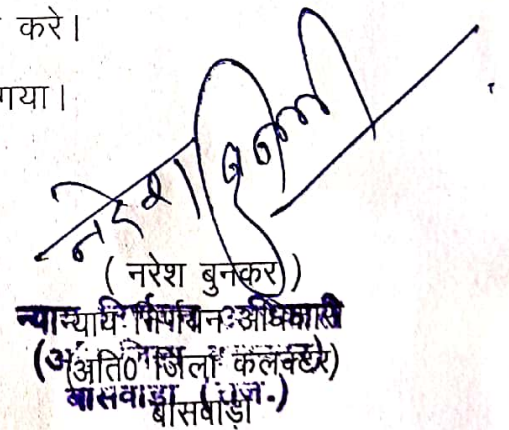 करे।
गया।
नरेश
( नरेश बुनकर )
न्याय निर्णयन अधिकारी
(अति0 जिला कलक्टर)
बांसवाड़ा